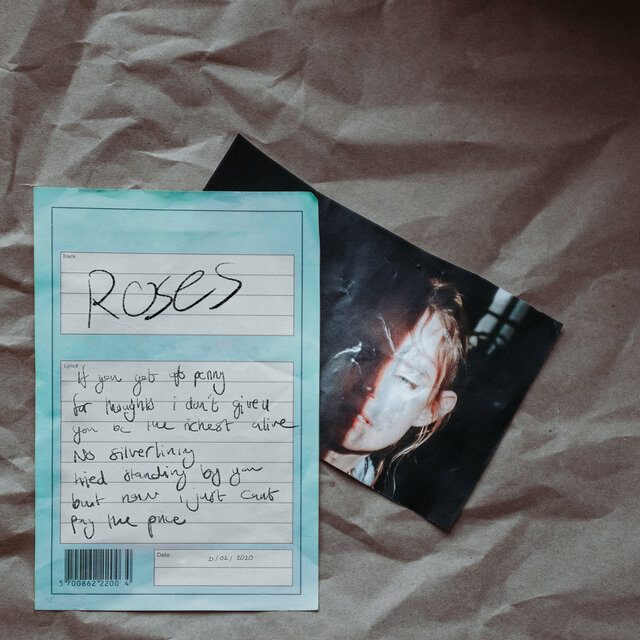 Track
Roses
Lyrics
If you get a penny
for thoughts i don't give u
you be the richest alive
No silverlining
tried standing by you
but now i just cant
pay the price
Date
21/02/2020
5 700862 2200 4